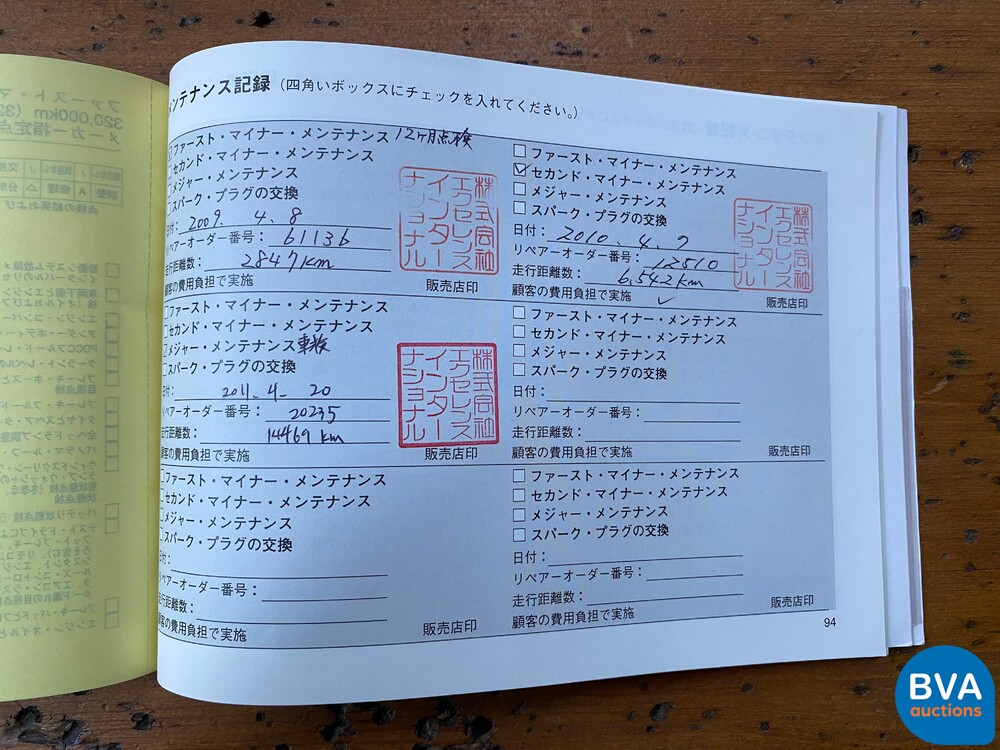 メンテナンス記録 (四角いボックスにチェックを入れてください。)
ファースト・マイナー・メンテナンス 12ヶ月点検
セカンド・マイナー・メンテナンス
メジャー・メンテナンス
スパーク・プラグの交換
日付: 2009. 4. 8
リペアーオーダー番号: 61136
走行距離数: 2847km
顧客の費用負担で実施
販売店印
株式会社
エクセレンス
インター
ナショナル
ファースト・マイナー・メンテナンス
セカンド・マイナー・メンテナンス
メジャー・メンテナンス
スパーク・プラグの交換
日付: 2010. 4. 7
リペアーオーダー番号: 12510
走行距離数: 6,542km
顧客の費用負担で実施
販売店印
株式会社
エクセレンス
インター
ナショナル
ファースト・マイナー・メンテナンス
セカンド・マイナー・メンテナンス
メジャー・メンテナンス 車検
スパーク・プラグの交換
日付: 2011. 4. 20
リペアーオーダー番号: 20235
走行距離数: 14469 km
顧客の費用負担で実施
販売店印
株式会社
エクセレンス
インター
ナショナル
ファースト・マイナー・メンテナンス
セカンド・マイナー・メンテナンス
メジャー・メンテナンス
スパーク・プラグの交換
日付:
リペアーオーダー番号:
走行距離数:
顧客の費用負担で実施
販売店印
ファースト・マイナー・メンテナンス
セカンド・マイナー・メンテナンス
メジャー・メンテナンス
スパーク・プラグの交換
日付:
リペアーオーダー番号:
走行距離数:
顧客の費用負担で実施
販売店印
ファースト・マイナー・メンテナンス
セカンド・マイナー・メンテナンス
メジャー・メンテナンス
スパーク・プラグの交換
日付:
リペアーオーダー番号:
走行距離数:
顧客の費用負担で実施
販売店印
94
BVA
auctions